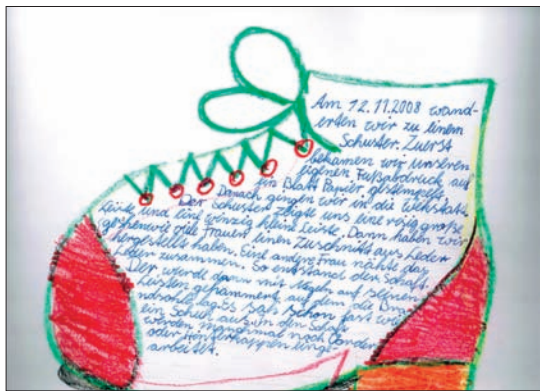 Am 12.11.2008 wand-
erten wir zu einem
Schuster. Zuerst
bekamen wir unseren
eigenen Fußabdruck auf
ein Blatt Papier gestempelt.
Danach gingen wir in die Werkstatt.
Der Schuster zeigte uns eine große
Leiste und eine winzig kleine Leiste. Dann haben wir
gesehen wie die Frauen einen Zuschnitt aus Leder
hergestellt haben. Eine andere Frau nähte das
Leder zusammen. So entstand der Schaft.
Der wurde dann mit Nägeln auf seinen
Leisten gespannt, auf dem die Brand-
sohle lag. Es sah schon fast wie
ein Schuh aus. In den Schaft
werden manchmal noch Vorder-
oder Hinterkappen einge-
arbeitet.